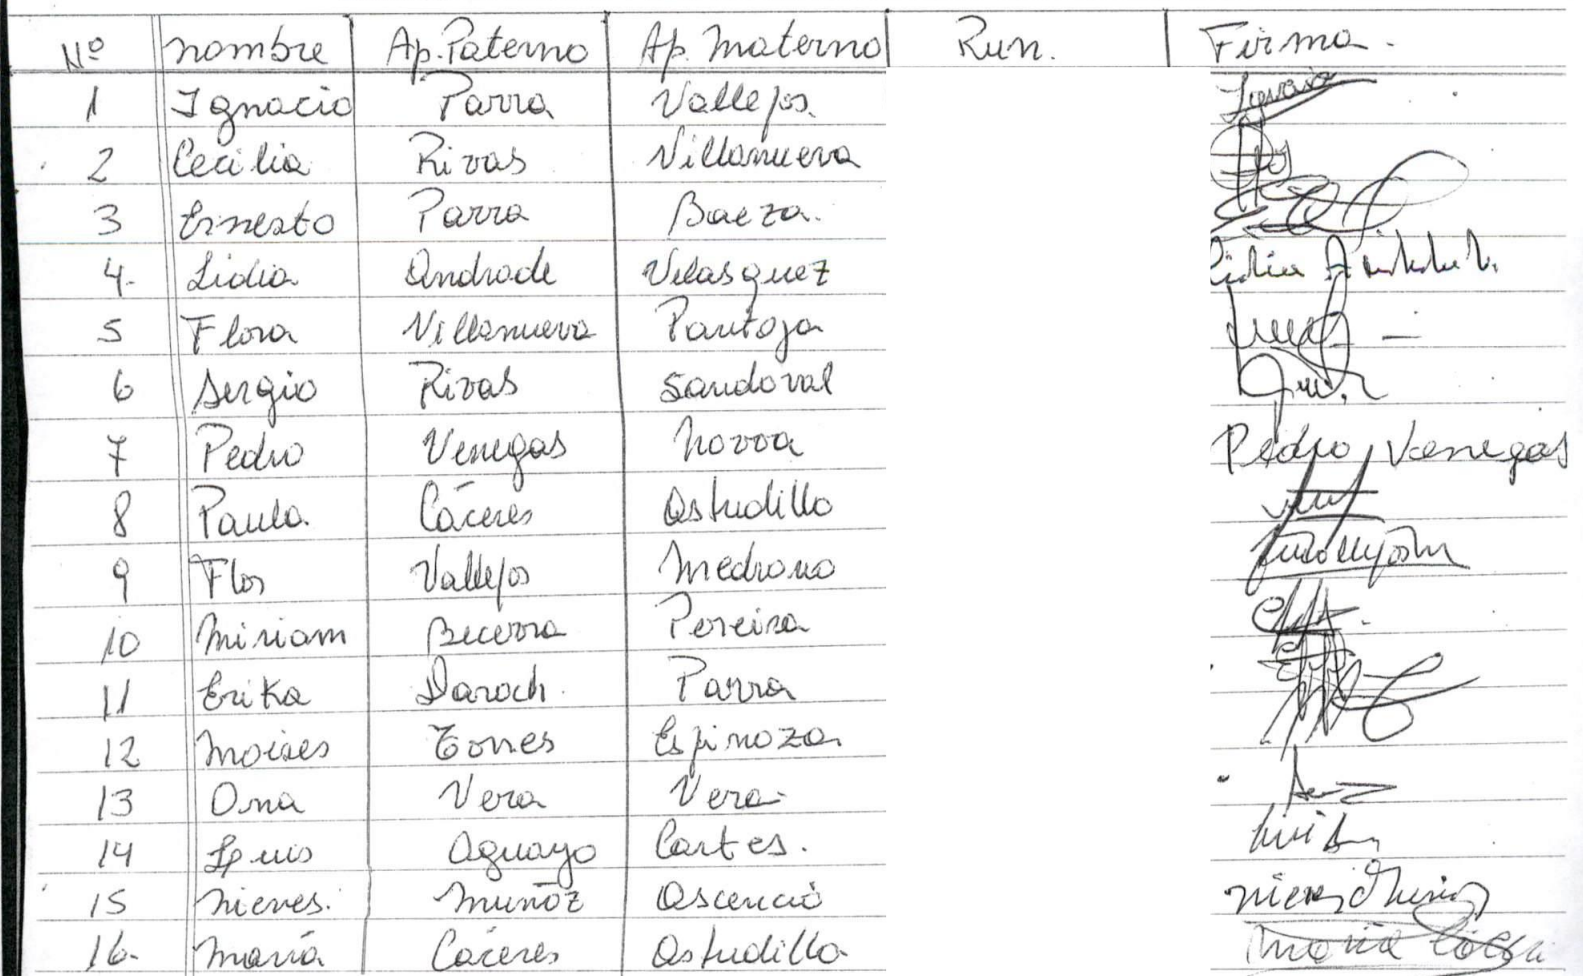 Nº nombre Ap. Paterno Ap. Materno Run. Firma.
1 Ignacio Parra Vallejos. Ignacio
2 Cecilia Rivas Villanueva
3 Ernesto Parra Baeza.
4. Lidia Andrade Velasquez Lidia
5 Flora Villanueva Pantoja
6 Sergio Rivas Sandoval
7 Pedro Venegas Novoa Pedro Venegas
8 Paula. Cáceres Astudillo
9 Flor Vallejos Medrano
10 Miriam Becerra Pereira
11 Erika Daroch. Parra
12 Moises Torres Espinoza.
13 Ana Vera Vera
14 Luis Aguayo Cartes. Luis
15 Nieves. Muñoz Ascencio Nieves Muñoz
16. María Cáceres Astudillo María